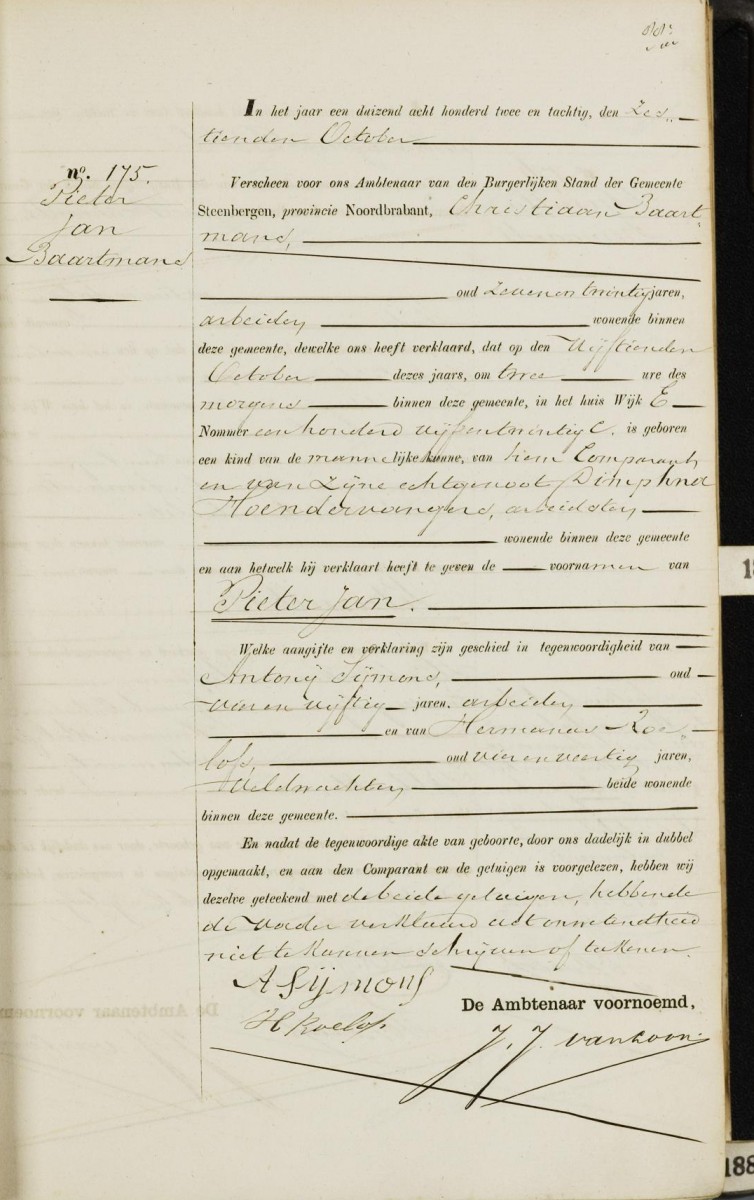 nº. 175.
Pieter
Jan
Baartmans
In het jaar een duizend acht honderd twee en tachtig, den Zes-
tienden October
Verscheen voor ons Ambtenaar van den Burgerlijken Stand der Gemeente
Steenbergen, provincie Noordbrabant, Christiaan Baart-
mans,
oud Zevenen twintig jaren,
arbeider, wonende binnen
deze gemeente, dewelke ons heeft verklaard, dat op den Vijftienden
October dezes jaars, om twee ure des
morgens binnen deze gemeente, in het huis Wijk E
Nommer een honderd vijfentwintig C. is geboren
een kind van de mannelijke kunne, van hem Comparant,
en van zijne echtgenoot Dimphna
Hoendervangers, arbeidster,
wonende binnen deze gemeente
en aan hetwelk hij verklaart heeft te geven de voornamen van
Pieter Jan.
Welke aangifte en verklaring zijn geschied in tegenwoordigheid van
Antonij Sijmons, oud
vier en vijftig jaren, arbeider,
en van Hermanus Roe-
lofs, oud vier en veertig jaren,
Veldwachter, beide wonende
binnen deze gemeente.
En nadat de tegenwoordige akte van geboorte, door ons dadelijk in dubbel
opgemaakt, en aan den Comparant en de getuigen is voorgelezen, hebben wij
dezelve geteekend met de beide getuigen, hebbende
de Vader verklaard uit onwetendheid
niet te kunnen schrijven of teekenen.
A Sijmons
H Roelofs
De Ambtenaar voornoemd,
J. J. van Loon
188